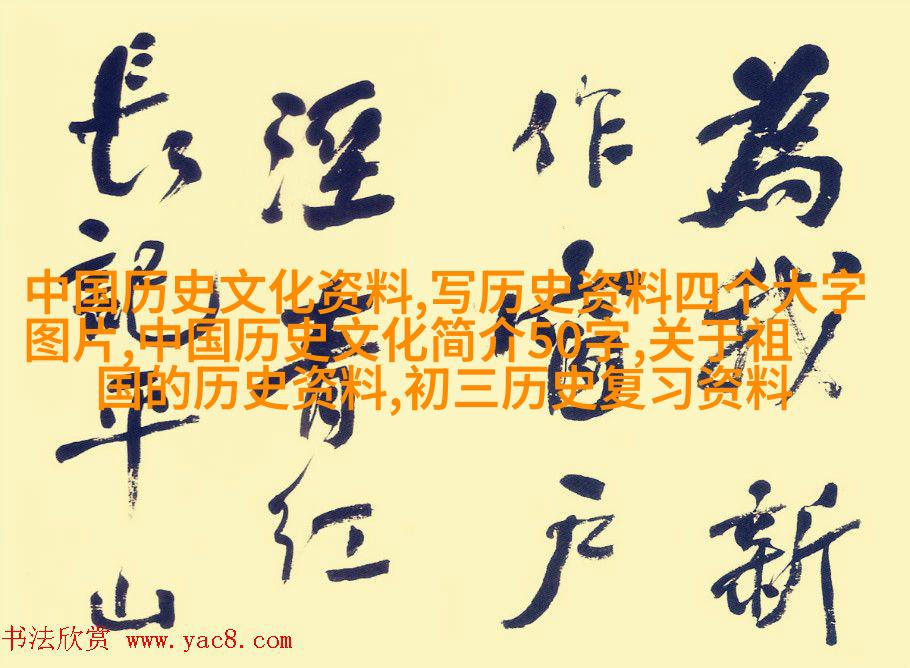 為我新
作窗户
溼青红
長記平山
中国历史文化资料,写历史资料四个大字
图片,中国历史文化简介50字,关于祖
国的历史资料,初三历史复习资料
书法欣赏 www.yac8.com